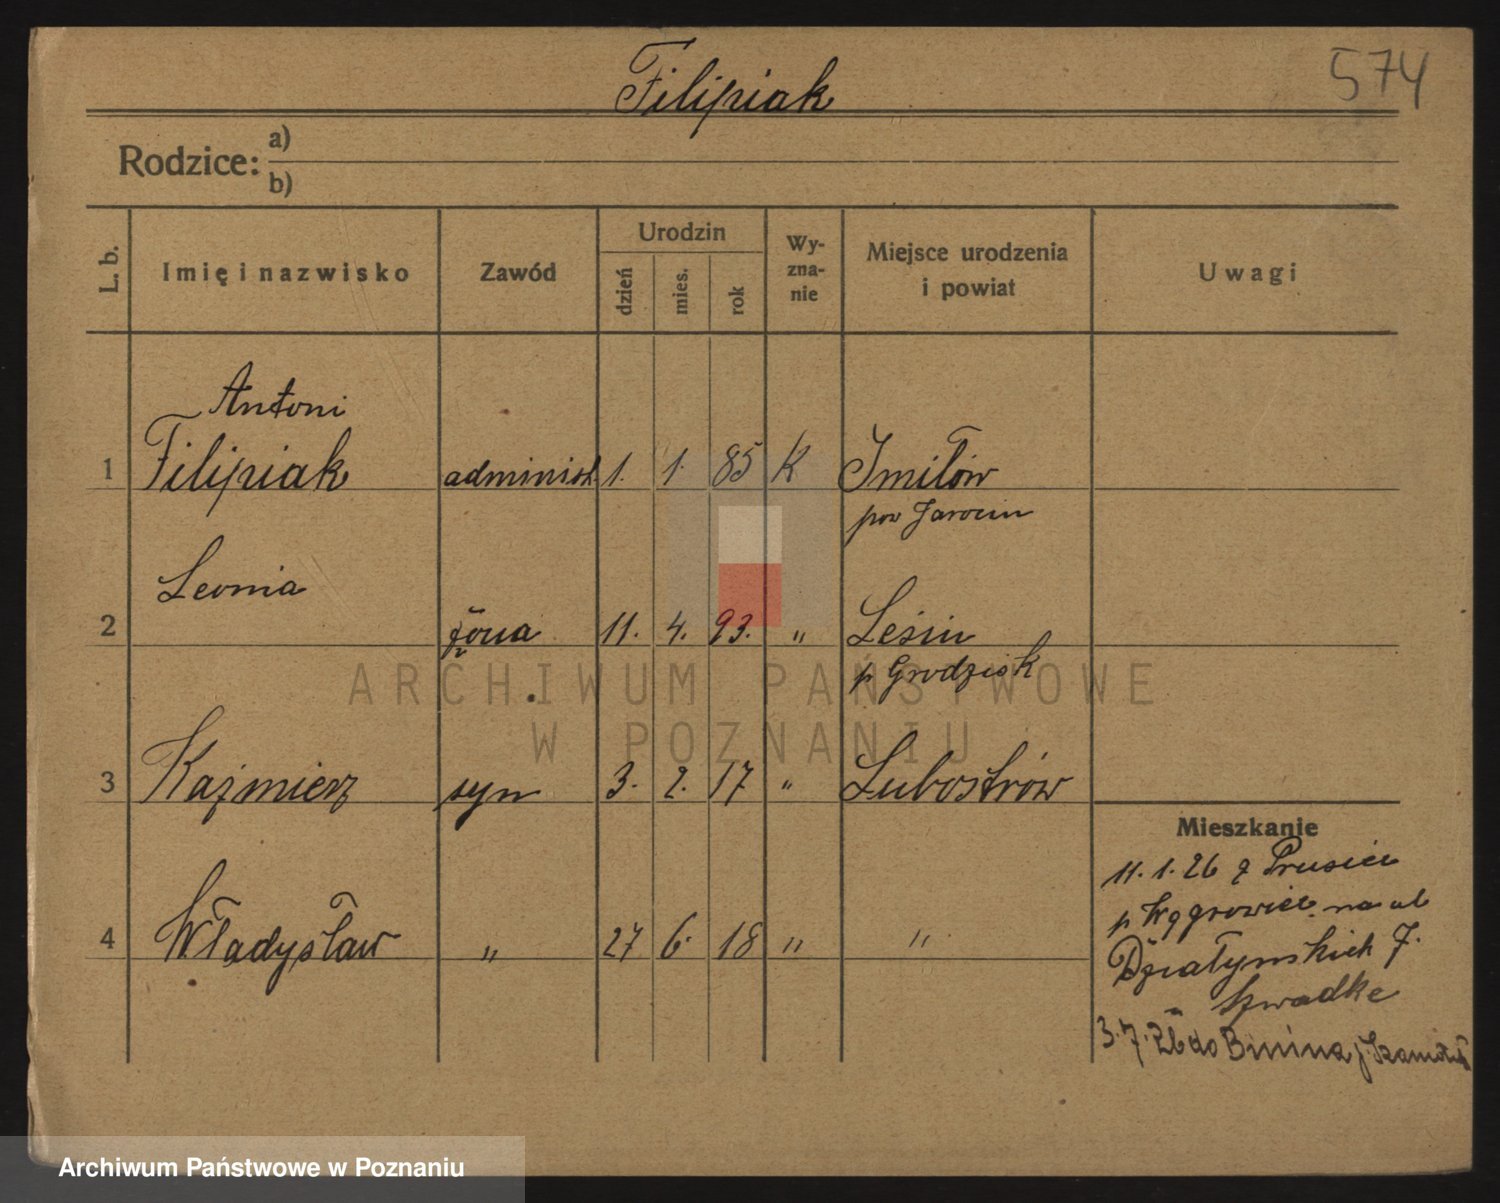 Filipiak
574
Rodzice: a)
b)
L. b.
Imię i nazwisko
Zawód
Urodzin
dzień
mies.
rok
Wy-
zna-
nie
Miejsce urodzenia
i powiat
Uwagi
Antoni
1 Filipiak administ. 1. 1. 85 K Imilów
pow Jarocin
Leonia
2 żona 11. 4. 93. " Leśin
p Grodzisk
3 Kaźmierz syn 3. 2. 17 " Lubostrów
4 Władysław " 27 6. 18 " "
Mieszkanie
11. 1. 26 z Prusiec
p Wągrowiec na ul
Działyńskich 7.
Szwadke
3. 7. 26 do Binina p. Szamotuł
ARCHIWUM PAŃSTWOWE
W POZNANIU
Archiwum Państwowe w Poznaniu